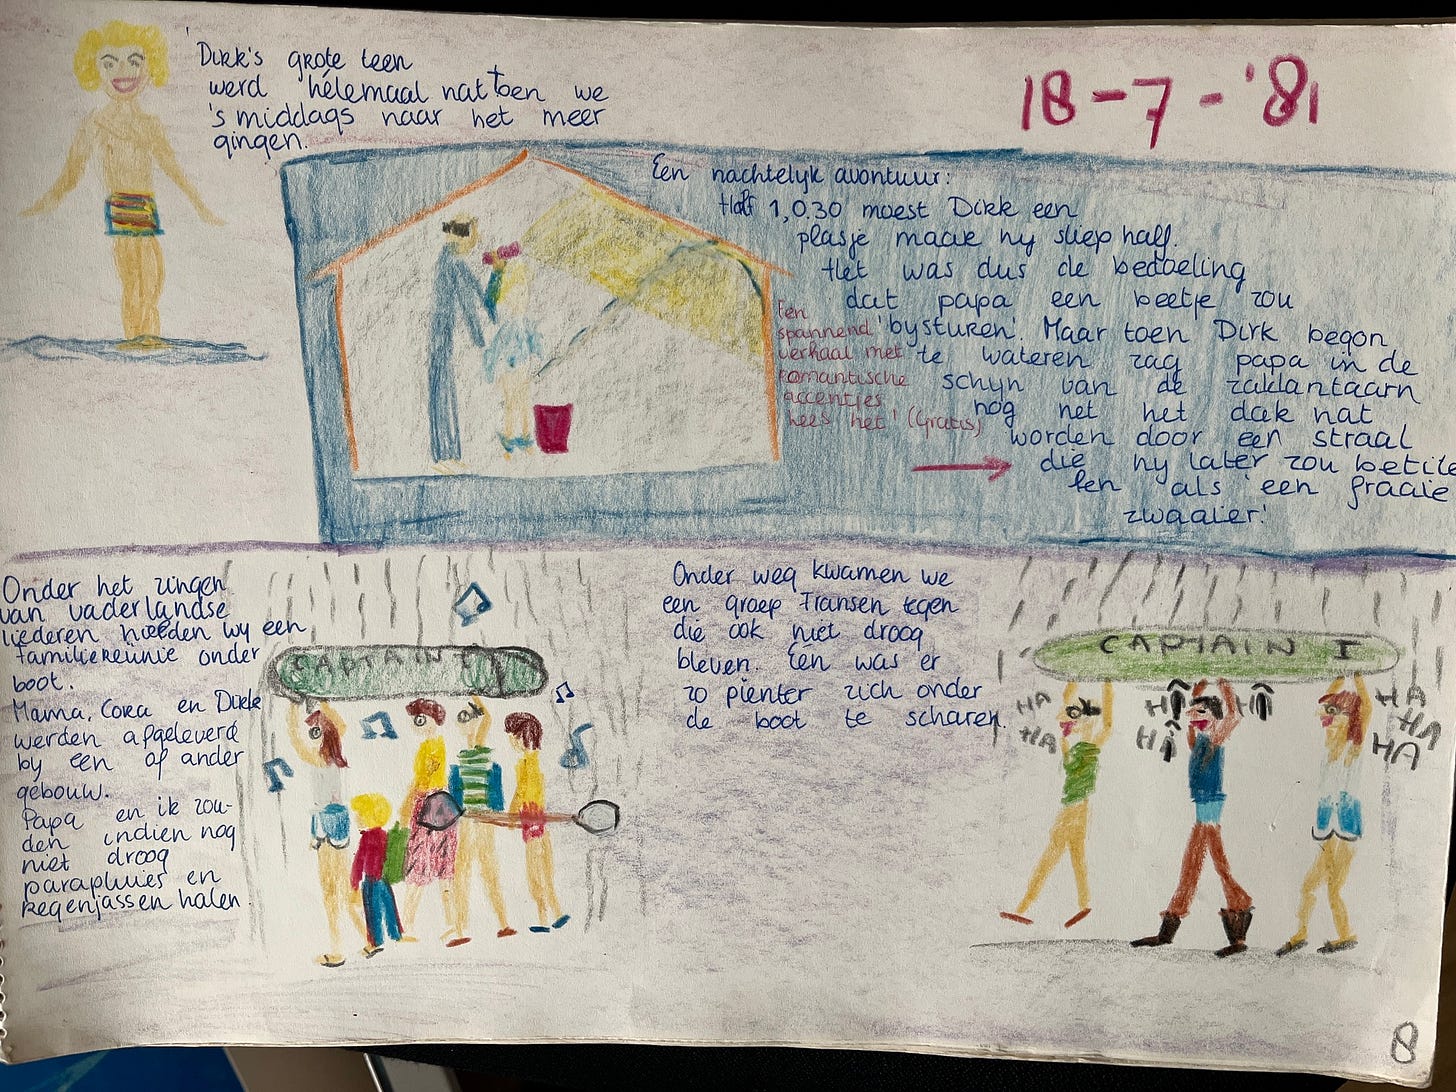 'Dirk's grote teen
werd hélemaal nat toen we
's middags naar het meer
gingen.
18-7-'81
Een nachtelyk avontuur:
Half 1, 0.30 moest Dirk een
plasje maar hy sliep half.
Het was dus de bedoeling
dat papa een beetje zou
'bysturen'. Maar toen Dirk begon
te wateren zag papa in de
schyn van de zaklantaarn
nog net het dak nat
worden door een straal
die hy later zou betite
len als 'een fraaie
zwaaier.'
Een
spannend
verhaal met
romantische
accentjes
lees het! (Gratis)
Onder het zingen
van vaderlandse
liederen hielden wy een
familiereünie onder
boot.
Mama, Cora en Dirk
werden afgeleverd
by een of ander
gebouw.
Papa en ik zou-
den indien nog
niet droog
parapluies en
regenjassen halen.
CAPTAIN I
Onder weg kwamen we
een groep Fransen tegen
die ook niet droog
bleven. Één was er
zo pienter zich onder
de boot te scharen.
CAPTAIN I
HA
HA
HÎ
HÎ
HÎ
HA
HA
HA
8